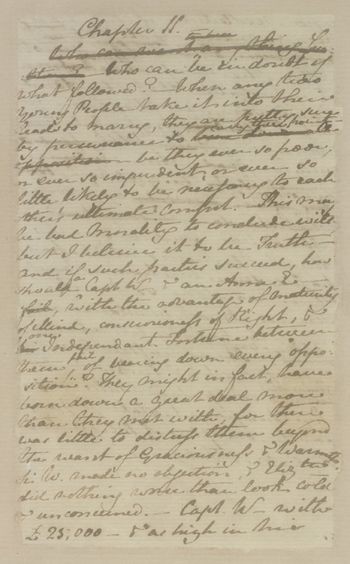 Chapter 11.
Who can be in doubt of
what followed? When any two
Young People take it into their
heads to marry, they are pretty sure
by perseverance to carry their point
be they ever so poor,
or ever so imprudent, or ever so
little likely to be necessary to each
other's ultimate comfort. This may
be bad Morality to conclude with
but I believe it to be Truth
and if such parties succeed, how
should a Capt W. & an Anne E.
with the advantage of Maturity
of Mind, consciousness of Right, &
one Independant Fortune between
them fail of bearing down every oppo-
sition? They might in fact, have
born down a great deal more
than they met with, for there
was little to distress them beyond
the want of Graciousness & Warmth
Sir W. made no objection, & Eliz:th
did nothing worse than look cold
& unconcerned. — Capt. W— with
£25,000 — & as high in his